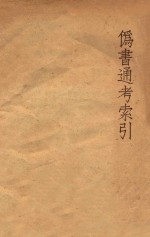 偽書通考索引